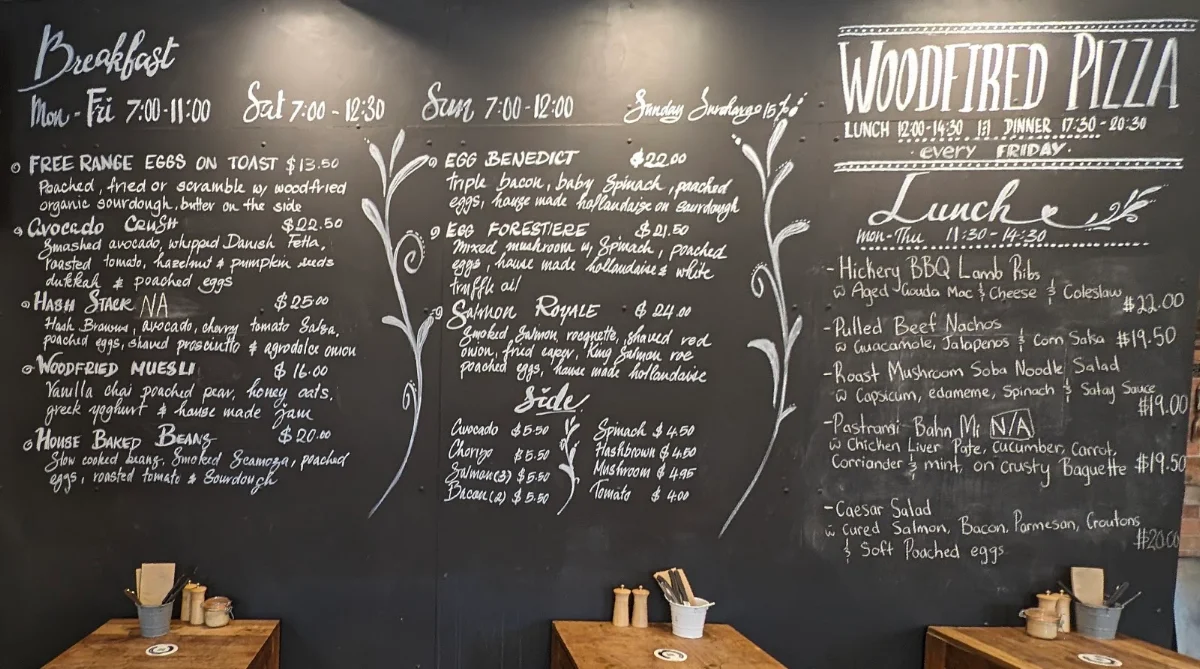 Breakfast
Mon - Fri 7:00-11:00 Sat 7:00 - 12:30 Sun 7:00 - 12:00 Sunday Surcharge 15%
FREE RANGE EGGS ON TOAST $13.50
Poached, fried or scramble w/ woodfired
organic sourdough, butter on the side
Avocado CRUSH $22.50
Smashed avocado, whipped Danish Fetta,
roasted tomato, hazelnut & pumpkin seeds
dukkah & poached eggs
HASH STACK NA $25.00
Hash Browns, avocado, cherry tomato Salsa,
poached eggs, shaved prosciutto & agrodolce onion
WOODFRIED MUESLI $16.00
Vanilla chai poached pear, honey oats,
greek yoghurt & house made jam
HOUSE BAKED BEANS $20.00
Slow cooked beans, Smoked Scamoza, poached
eggs, roasted tomato & Sourdough
EGG BENEDICT $22.00
triple bacon, baby Spinach, poached
eggs, house made hollandaise on sourdough
EGG FORESTIERE $21.50
Mixed mushroom w, Spinach, poached
eggs, house made hollandaise & white
truffle oil
SALMON ROYALE $24.00
Smoked Salmon, roquette, shaved red
onion, fried caper, King Salmon roe
poached eggs, house made hollandaise
Side
Avocado $5.50
Chorizo $5.50
Salmon(3) $5.50
Bacon(2) $5.50
Spinach $4.50
Hashbrown $4.50
Mushroom $4.95
Tomato $4.00
WOODFIRED PIZZA
LUNCH 12:00-14:30 DINNER 17:30 - 20:30
every FRIDAY
Lunch
mon-Thu 11:30 - 14:30
-Hickery BBQ Lamb Ribs
w Aged Gouda Mac & Cheese & Coleslaw $22.00
-Pulled Beef Nachos
w Guacamole, Jalapenos & Corn Salsa $19.50
-Roast Mushroom Soba Noodle Salad
w Capsicum, edameme, Spinach & Satay Sauce
$19.00
-Pastrami Bahn Mi N/A
w Chicken Liver Pate, Cucumber, Carrot,
Corriander & mint, on crusty Baguette $19.50
-Caesar Salad
w Cured Salmon, Bacon, Parmesan, Croutons
& Soft Poached eggs $20.00